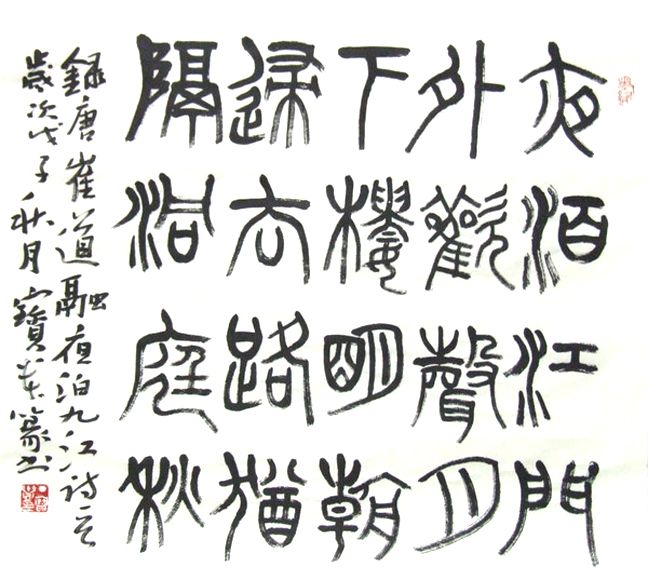 夜泊江門
外歡聲月
下樓明朝
歸去路猶
隔洞庭秋
錄唐崔道融夜泊九江诗
歲次戊子秋月寶篆书